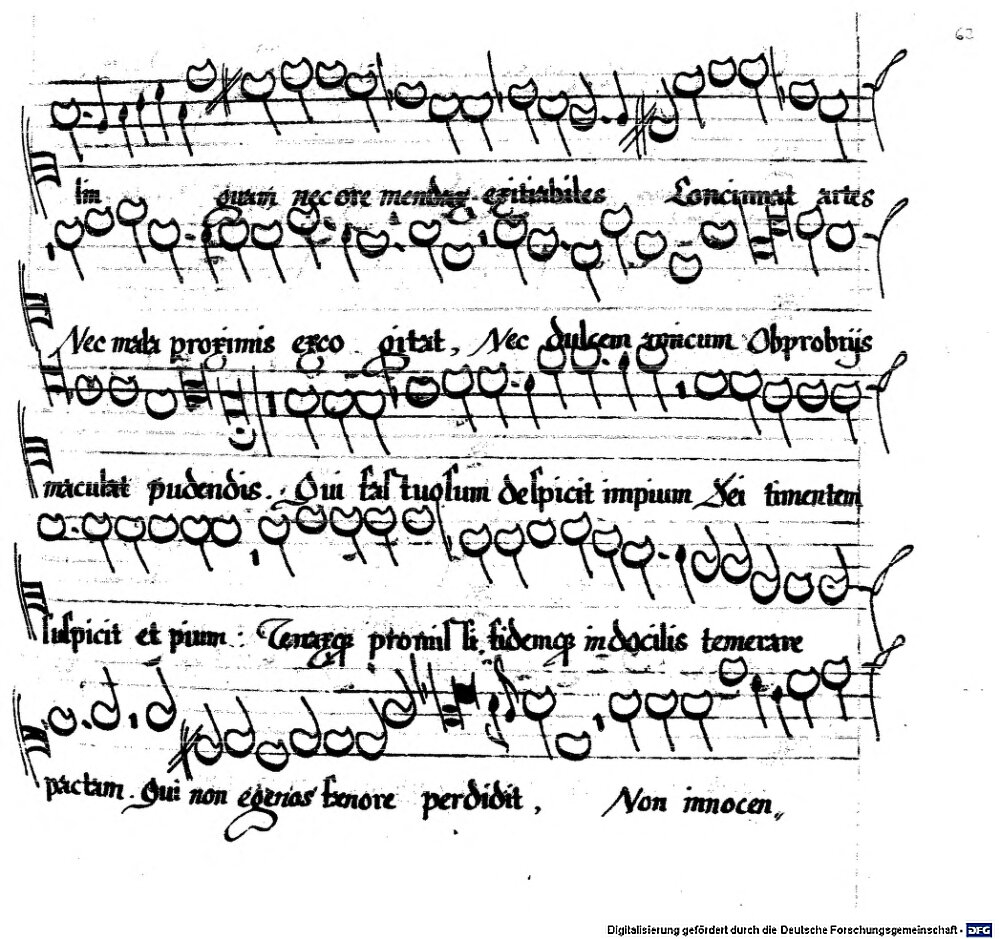 63
lin quam nec ore mendax exitiabiles Concinnat artes
Nec mala proximis exco gitat, Nec dulcem amicum Obprobrijs
maculat pudendis. Qui fastuosum despicit impium Dei timentem
suspicit et pium: Tenaxq promissi, fidemq indocilis temerare
pactam. Qui non egenos fenore perdidit, Non innocen„
Digitalisierung gefördert durch die Deutsche Forschungsgemeinschaft - DFG